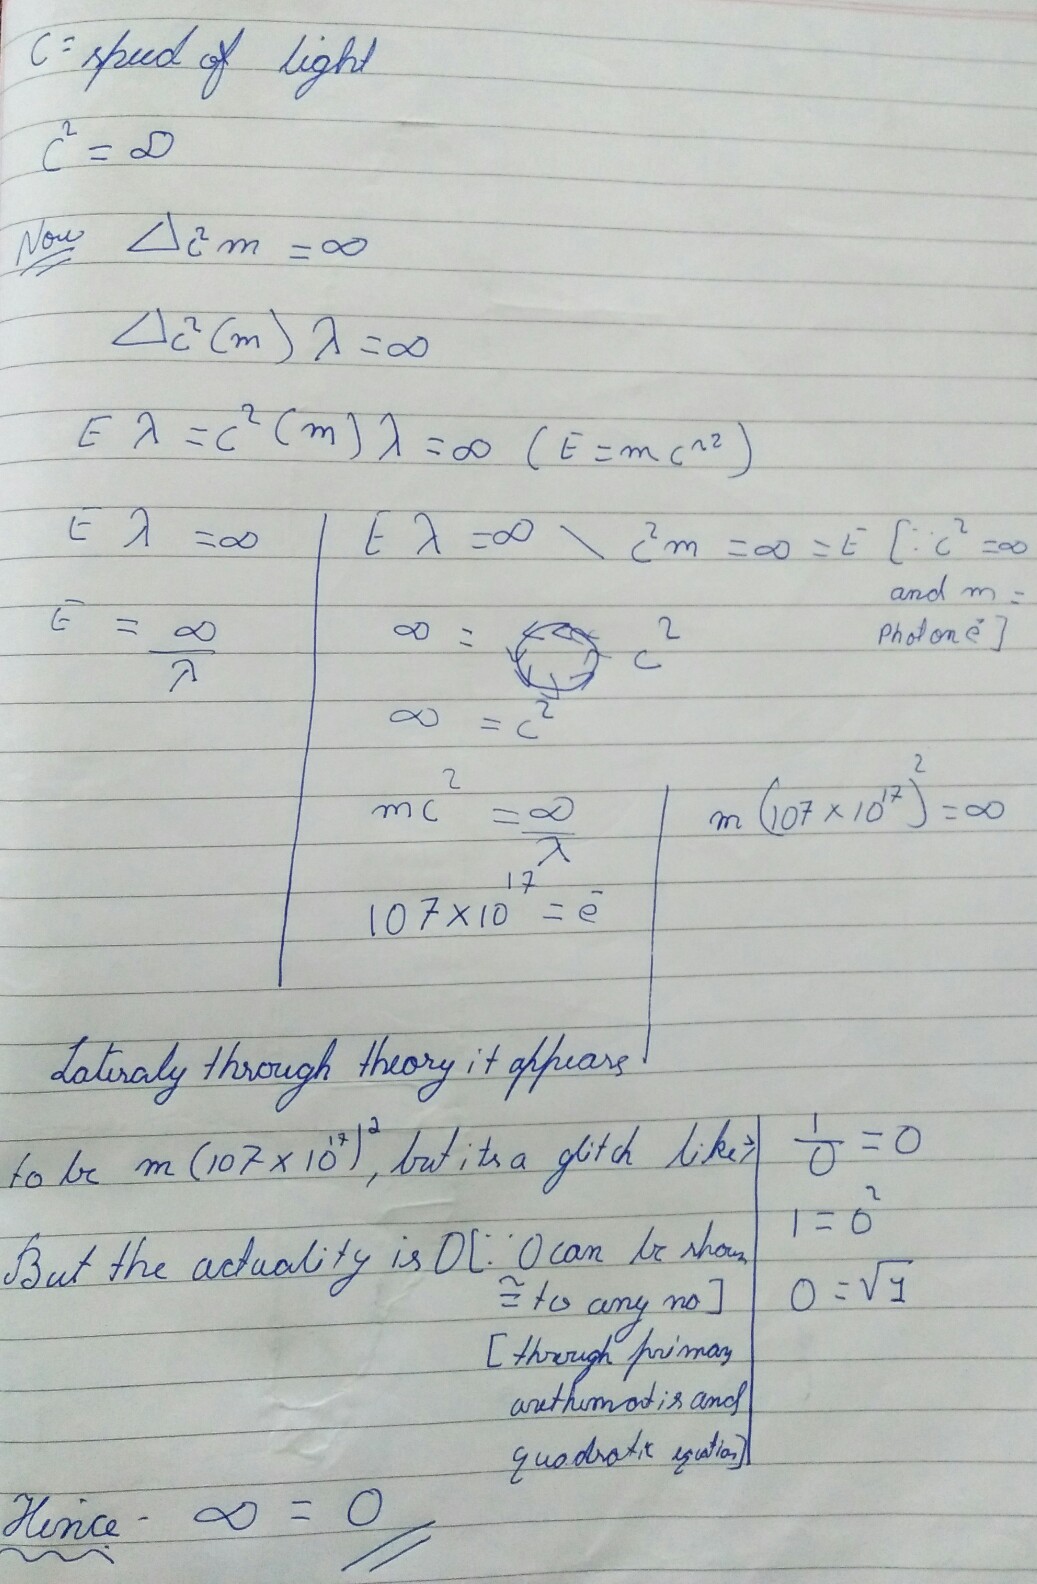 C = speed of light
c² = ∞
Now Δc²m = ∞
Δc²(m) λ = ∞
E λ = c²(m) λ = ∞ (E = mc^2)
E λ = ∞
E = ∞/λ
E λ = ∞ \ c²m = ∞ = E [∵ c² = ∞
and m =
Photon e]
∞ = c²
∞ = c²
mc² = ∞/λ
107 × 10¹⁷ = ē
m(107 × 10¹⁷)² = ∞
Lateraly through theory it appears
to be m(107 × 10¹⁷)², but its a glitch like :→
But the actuality is 0[∵ 0 can be shown
≅ to any no]
[through primary
arethematis and
quadratic equation]
1/0 = 0
1 = 0²
0 = √1
Hince - ∞ = 0